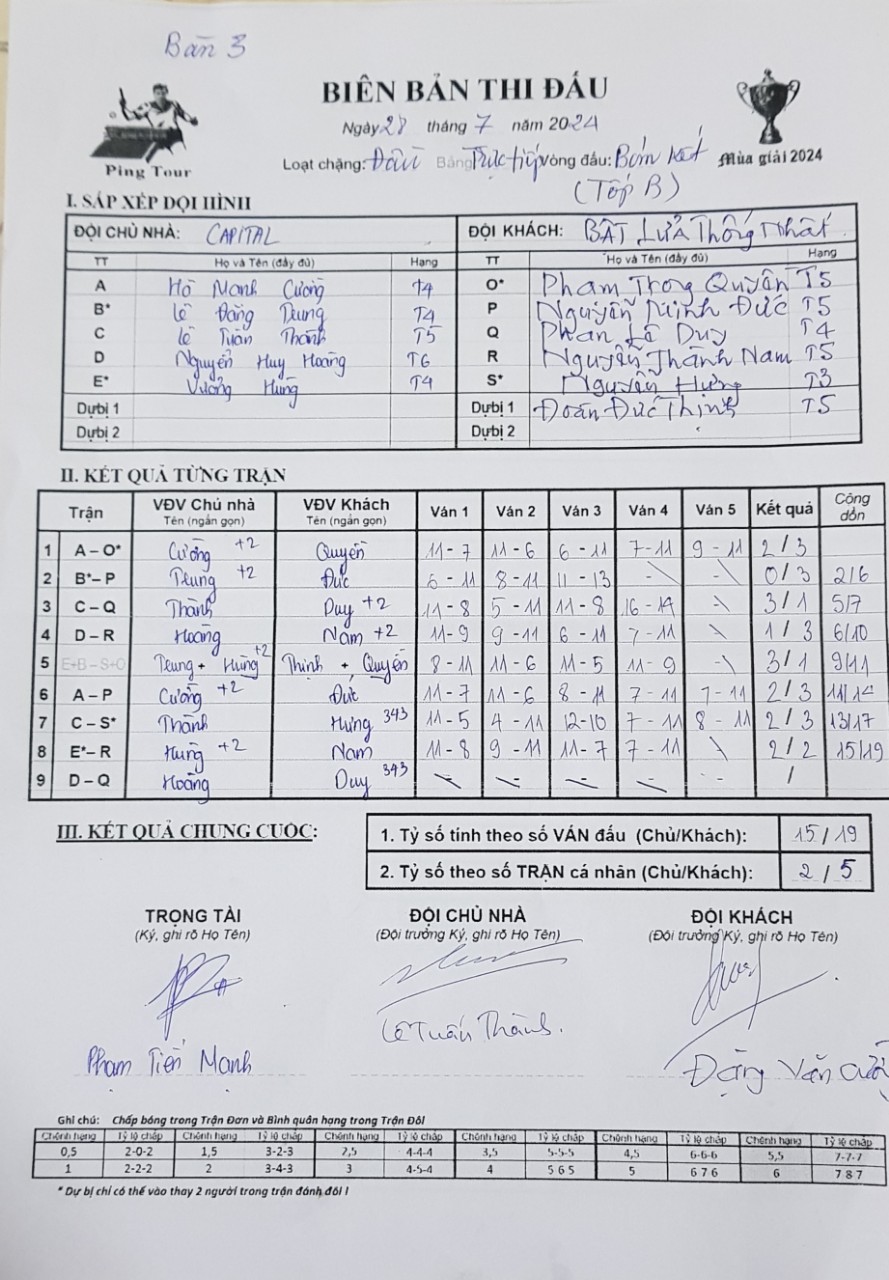 Bàn 3
BIÊN BẢN THI ĐẤU
Ngày 28 tháng 7 năm 2024
Ping Tour
Loạt chặng: Đầu Bảng Trực tiếp Vòng đấu: Bán kết
Mùa giải 2024
(Tốp B)
I. SẮP XẾP ĐỘI HÌNH
ĐỘI CHỦ NHÀ: CAPITAL ĐỘI KHÁCH: BẬT LỬA Thống Nhất
TT Họ và Tên (đầy đủ) Hạng TT Họ và Tên (đầy đủ) Hạng
A Hồ Mạnh Cường T4 O* Phạm Trọng Quyền T5
B* Lê Đăng Trung T4 P Nguyễn Minh Đức T5
C Lê Tuấn Thành T5 Q Phan Lê Duy T4
D Nguyễn Huy Hoàng T6 R Nguyễn Thành Nam T5
E* Vương Hùng T4 S* Nguyễn Hưng T3
Dự bị 1 Dự bị 1 Đoàn Đức Thịnh T5
Dự bị 2 Dự bị 2
II. KẾT QUẢ TỪNG TRẬN
Trận VĐV Chủ nhà Tên (ngắn gọn) VĐV Khách Tên (ngắn gọn) Ván 1 Ván 2 Ván 3 Ván 4 Ván 5 Kết quả Cộng dồn
1 A – O* Cường +2 Quyền 11 - 7 11 - 6 6 - 11 7 - 11 9 - 11 2 / 3
2 B* – P Trung +2 Đức 6 - 11 8 - 11 11 - 13 - - 0 / 3 2/6
3 C – Q Thành Duy +2 11 - 8 5 - 11 11 - 8 16 - 14 - 3 / 1 5/7
4 D – R Hoàng Nam +2 11 - 9 9 - 11 6 - 11 7 - 11 1 / 3 6/10
5 E+B – S+O Trung + Hùng +2 Thịnh + Quyền 8 - 11 11 - 6 11 - 5 11 - 9 - 3 / 1 9/11
6 A – P Cường +2 Đức 11 - 7 11 - 6 8 - 11 7 - 11 7 - 11 2 / 3 11/14
7 C – S* Thành Hưng 343 11 - 5 4 - 11 12 - 10 7 - 11 8 - 11 2 / 3 13/17
8 E* – R Hùng +2 Nam 11 - 8 9 - 11 11 - 7 7 - 11 2 / 2 15/19
9 D – Q Hoàng Duy 343 - - - - - /
III. KẾT QUẢ CHUNG CUỘC:
1. Tỷ số tính theo số VÁN đấu (Chủ/Khách): 15 / 19
2. Tỷ số theo số TRẬN cá nhân (Chủ/Khách): 2 / 5
TRỌNG TÀI ĐỘI CHỦ NHÀ ĐỘI KHÁCH
(Ký, ghi rõ Họ Tên) (Đội trưởng Ký, ghi rõ Họ Tên) (Đội trưởng Ký, ghi rõ Họ Tên)
Phạm Tiến Mạnh Lê Tuấn Thành. Đặng Văn
Ghi chú: Chấp bóng trong Trận Đơn và Bình quân hạng trong Trận Đôi
Chênh hạng Tỷ lệ chấp Chênh hạng Tỷ lệ chấp Chênh hạng Tỷ lệ chấp Chênh hạng Tỷ lệ chấp Chênh hạng Tỷ lệ chấp Chênh hạng Tỷ lệ chấp
0,5 2-0-2 1,5 3-2-3 2,5 4-4-4 3,5 5-5-5 4,5 6-6-6 5,5 7-7-7
1 2-2-2 2 3-4-3 3 4-5-4 4 5 6 5 5 6 7 6 6 7 8 7
* Dự bị chỉ có thể vào thay 2 người trong trận đánh đôi !